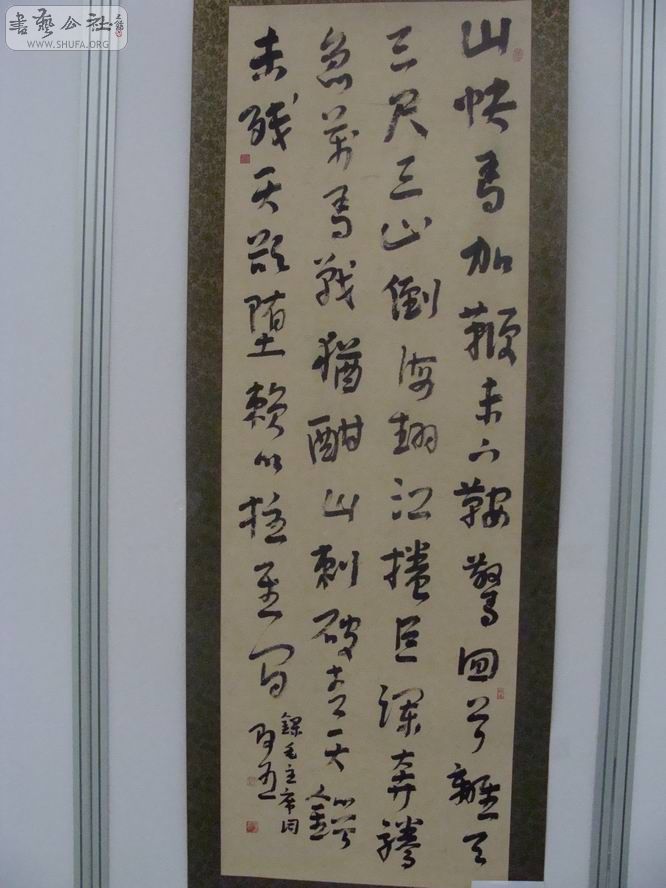 書藝公社
WWW.SHUFA.ORG
山快馬加鞭未下鞍驚回首離天
三尺三山倒海翻江捲巨瀾奔騰
急萬馬戰猶酣山刺破青天鍔
未殘天欲墮賴以拄其間
錄毛主席詞